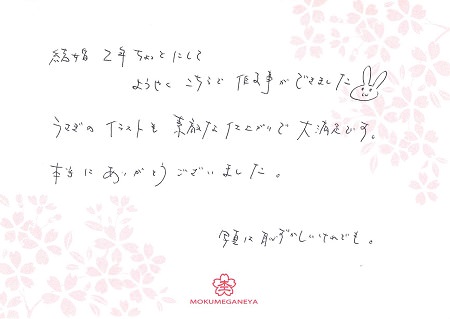 結婚2年ちょっとにして
ようやくこちらで作る事ができました
うさぎのイラストも素敵な仕上がりで大満足です。
本当にありがとうございました。
写真は恥ずかしいけれども。
MOKUMEGANEYA